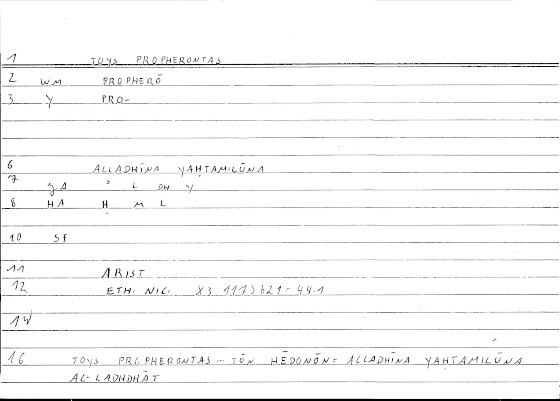 1 TOYS PROPHERONTAS
2 WM PROPHERŌ
3 Y PRO-
6 ALLADHĪNA YAḤTAMILŪNA
7 JA ʾ L DH Y
8 HA Ḥ M L
10 SF
11 ARIST
12 ETH. NIC. X3 1173b21 = 44.1
14
16 TOYS PROPHERONTAS ... TŌN HĒDONŌN = ALLADHĪNA YAḤTAMILŪNA
AL-LADHDHĀT